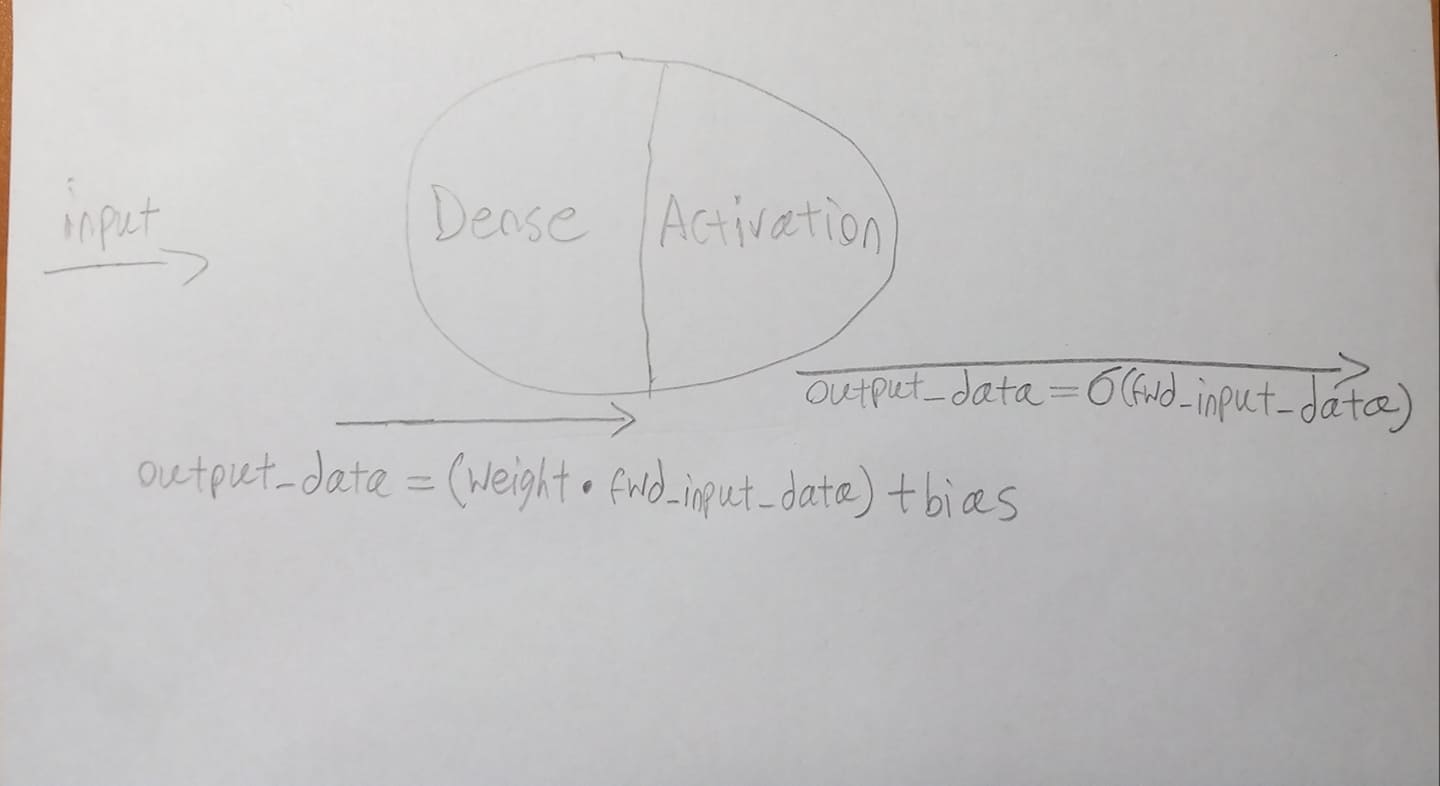 input
Dense
Activation
output_data = σ(fwd_input_data)
output_data = (weight • fwd_input_data) + bias